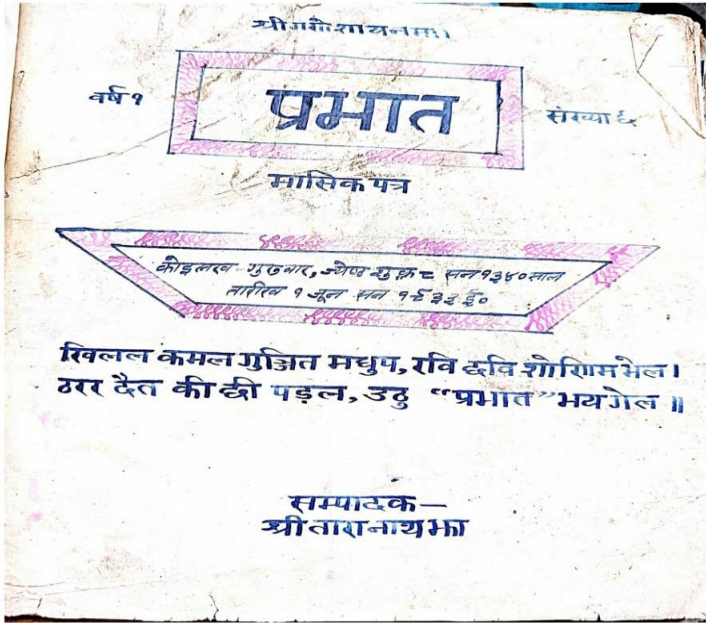 श्रीगणेशायनमः।
वर्ष १
प्रभात
संख्या ६
मासिक पत्र
कोइलख - गुरुवार, ज्येष्ठ शुक्ल ८ सन १३४० साल
तारीख १ जून सन १९३३ ई०
खिलल कमल गुञ्जित मधुप, रवि छवि शोणिम भेल।
ठरर दैत की छी पड़ल, उठु “प्रभात” भय गेल॥
सम्पादक—
श्री तारानाथ झा